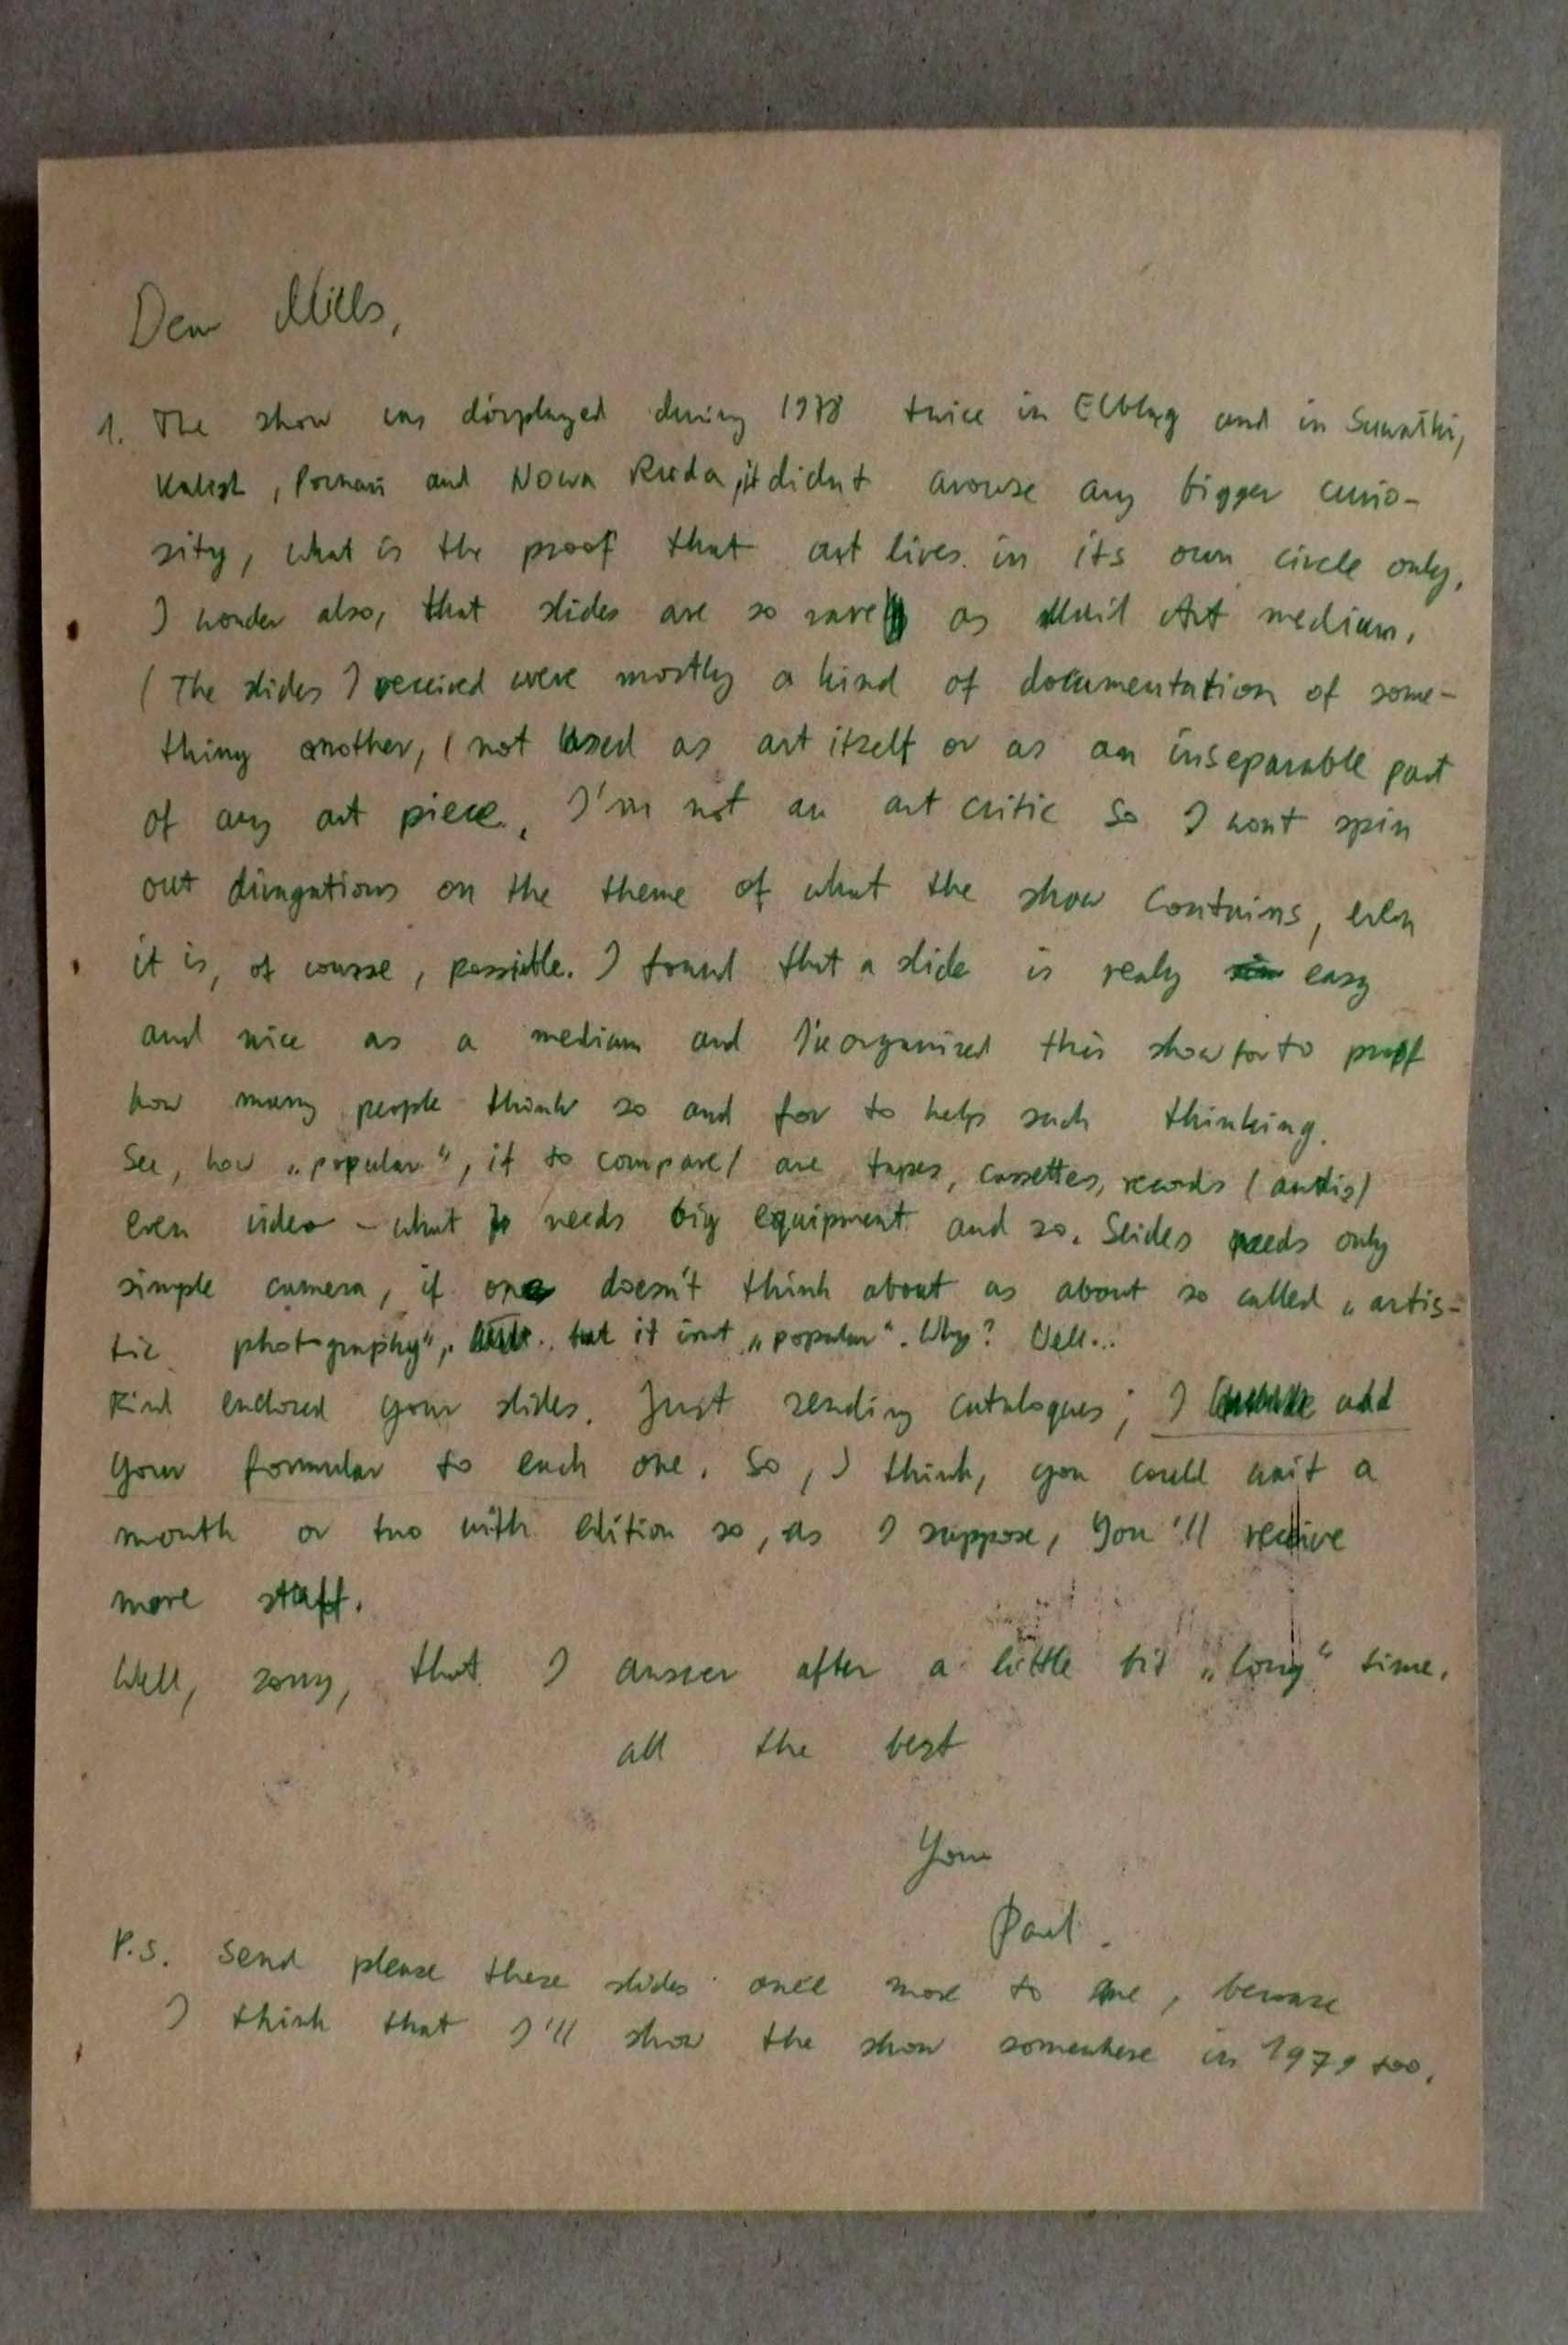 Dear Mills,
1. The show was displayed during 1978 twice in Elbląg and in Suwałki,
Kalisz, Poznań and Nowa Ruda, it didn't arouse any bigger curio-
sity, what is the proof that art lives in its own circle only.
I wonder also, that slides are so rare as Mail Art medium.
(The slides I received were mostly a kind of documentation of some-
thing another, (not used as art itself or as an inseparable part
of any art piece. I'm not an art critic so I wont spin
out divagations on the theme of what the show contains, even
it is, of course, possible. I found that a slide is realy easy
and nice as a medium and I've organized this show for to proof
how many people think so and for to help such thinking.
See, how „popular", if to compare/ are tapes, cassettes, records (audio)
even video – what needs big equipment and so. Slides needs only
simple camera, if one doesn't think about as about so called „artis-
tic photography", but it isnt „popular". Why? Well...
Find enclosed your slides. Just sending catalogues; I add
your formular to each one. So, I think, you could wait a
month or two with edition so, as I suppose, you'll receive
more staff.
Well, sorry, that I answer after a little bit „long" time.
all the best
Your
Paweł.
P.S. Send please these slides once more to me, because
I think that I'll show the show somewhere in 1979 too.